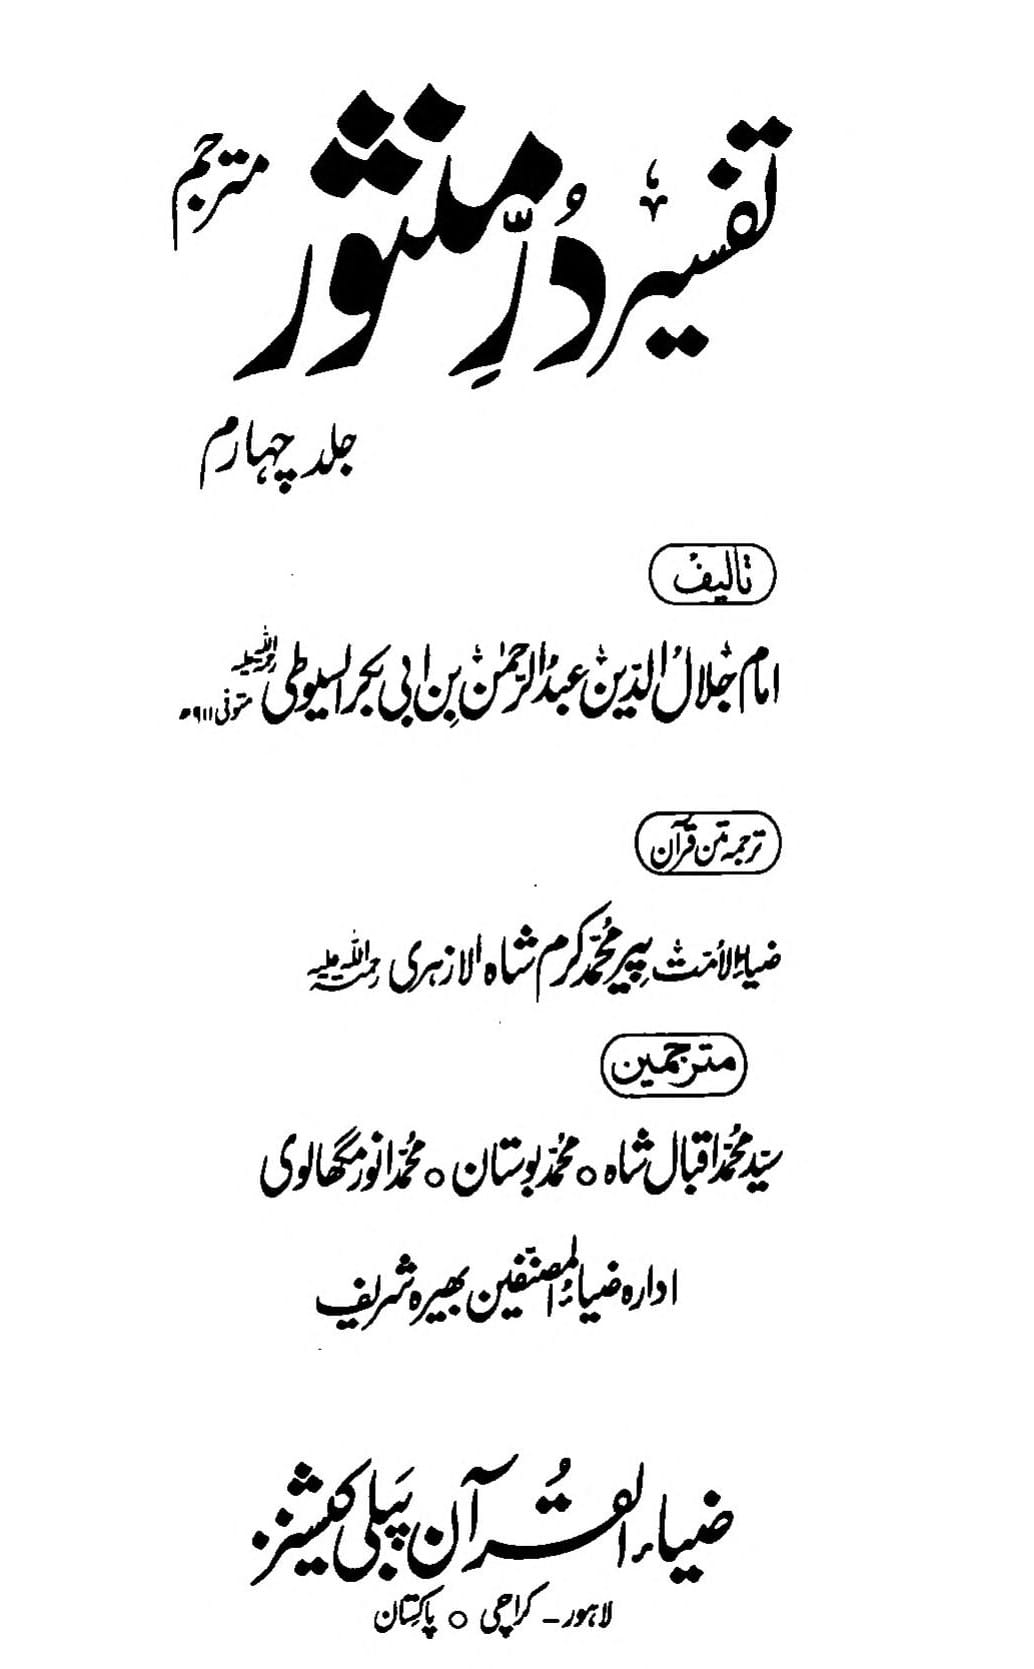 تفسیر دُرِّ منثور مترجم
جلد چہارم
تالیف
امام جلال الدین عبدالرحمٰن بن ابی بکر السیوطی رحمۃ اللہ علیہ متوفی ۹۱۱ھ
ترجمہ متن قرآن
ضیاء الامت پیر محمد کرم شاہ الازہری رحمۃ اللہ علیہ
مترجمین
سیّد محمد اقبال شاہ ○ محمد بوستان ○ محمد انور مگھالوی
ادارہ ضیاء المصنّفین بھیرہ شریف
ضیاء القرآن پبلی کیشنز
لاہور - کراچی ○ پاکستان